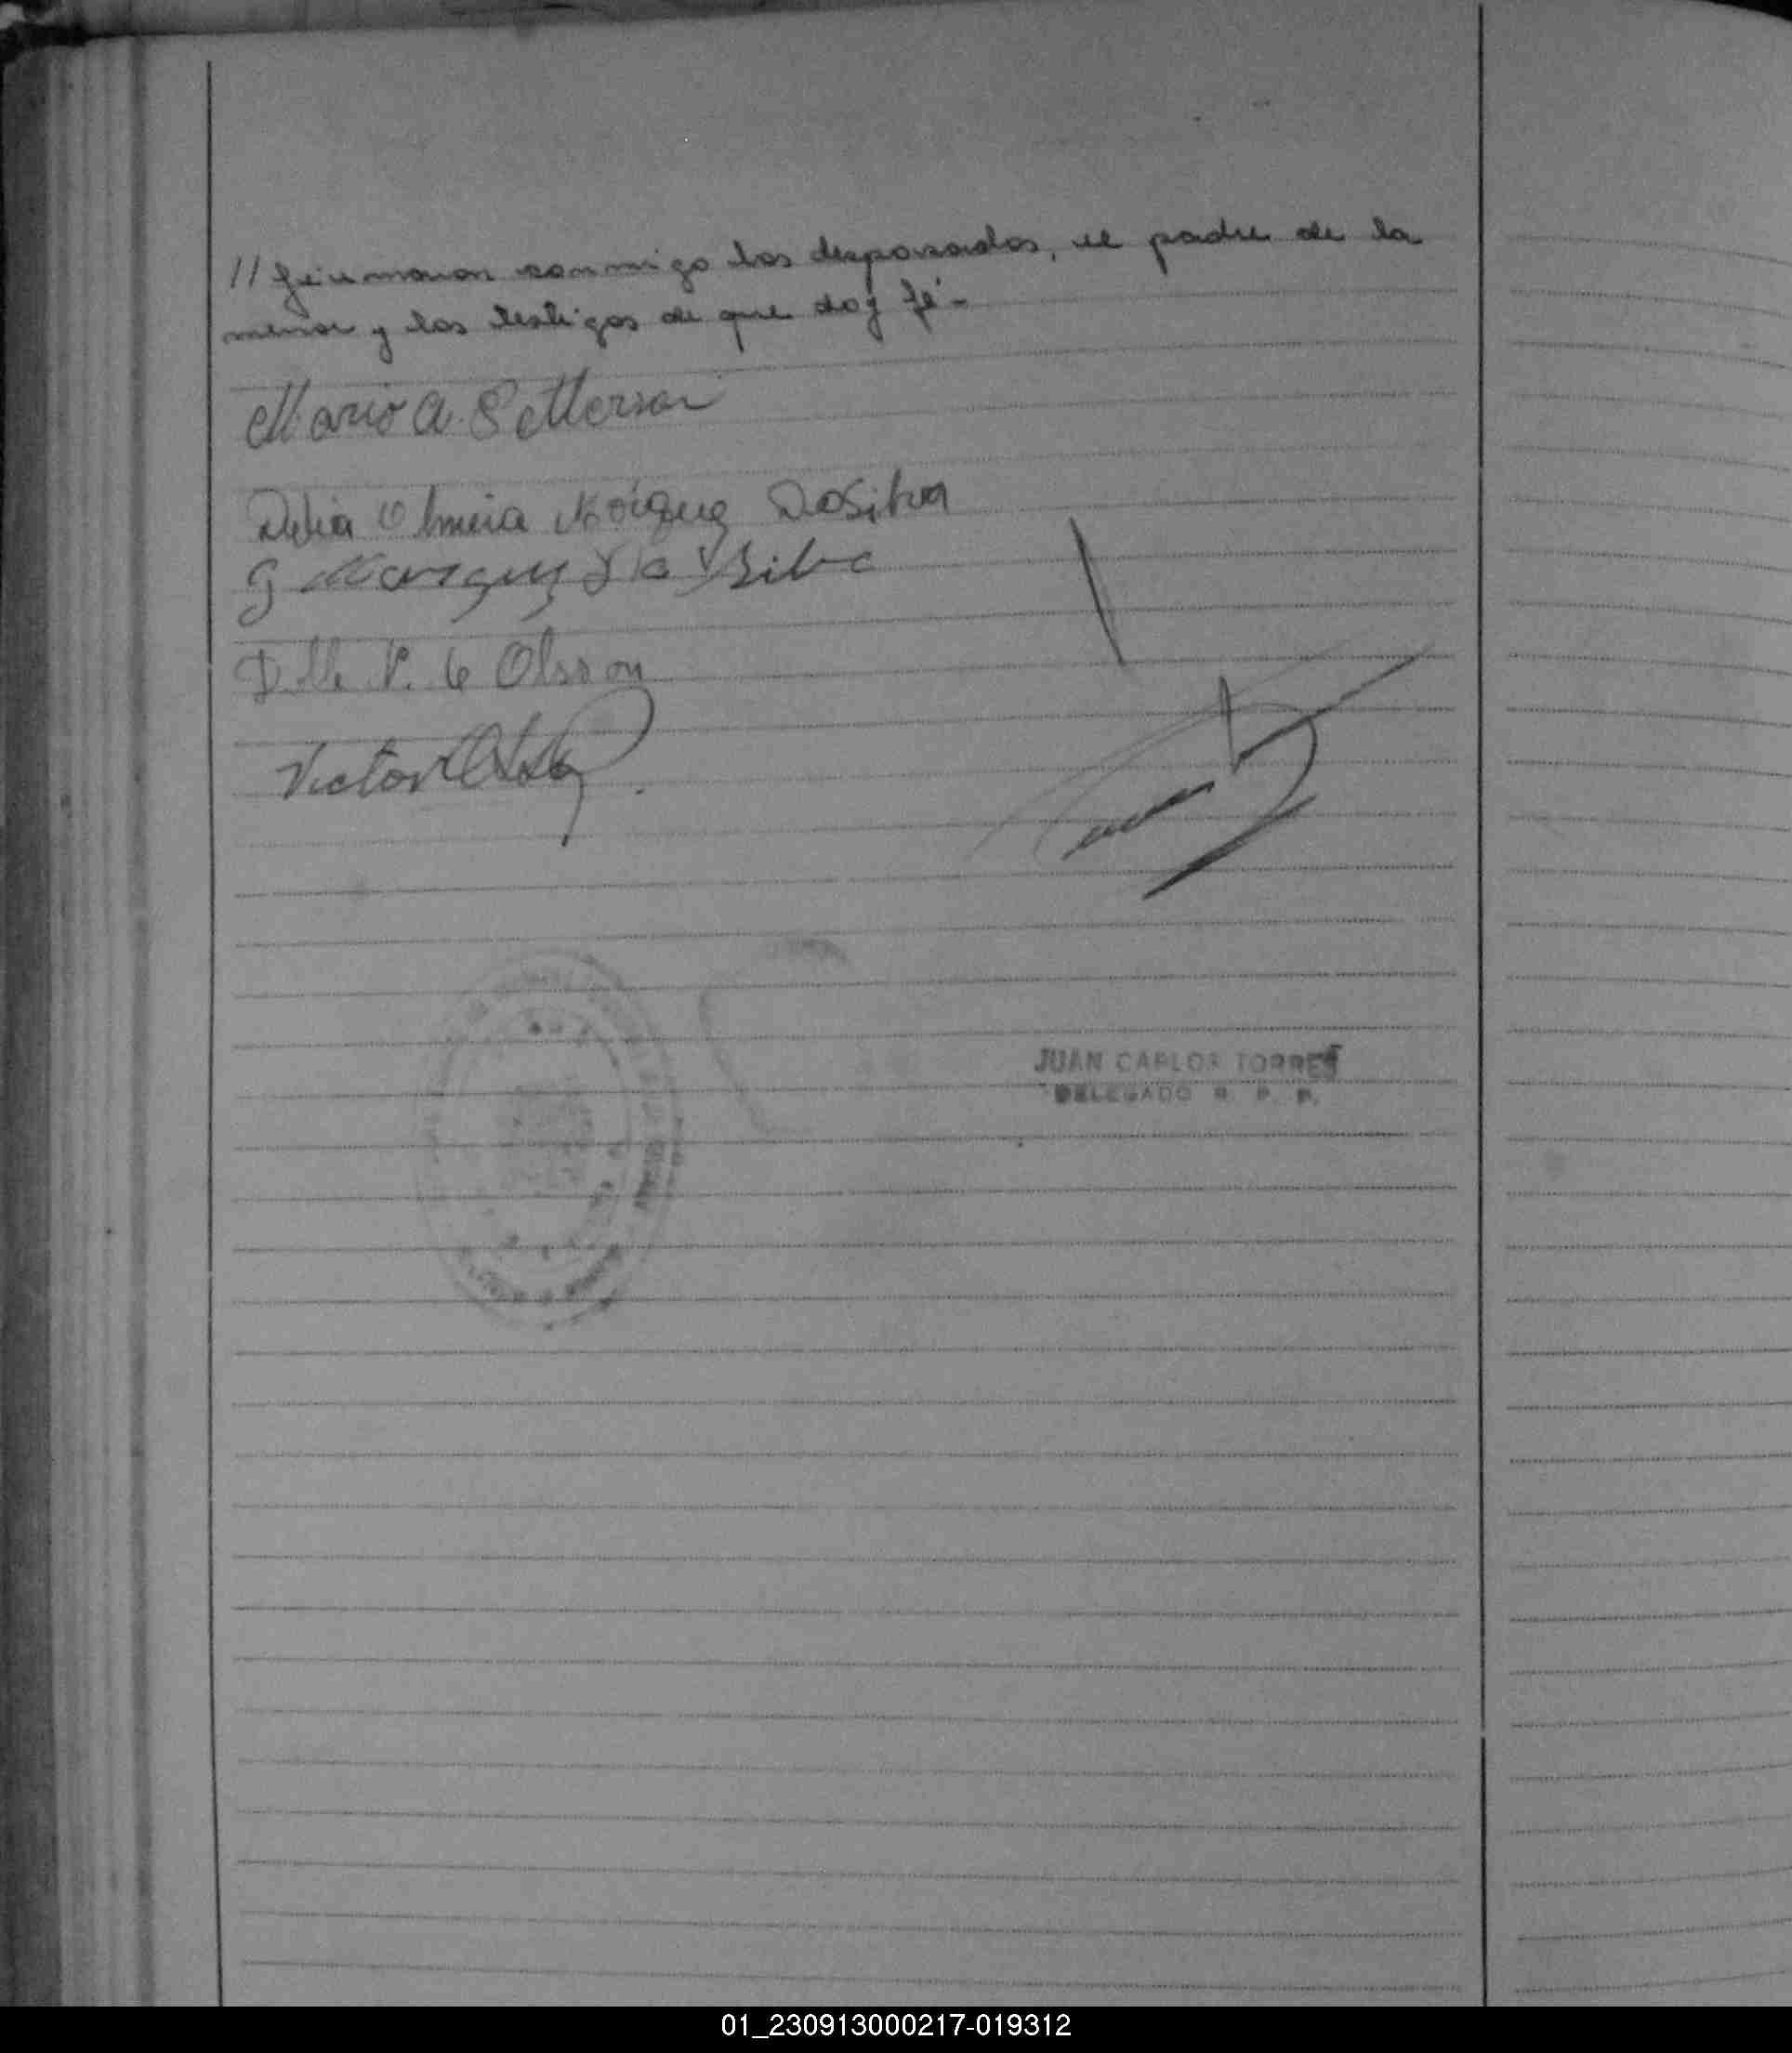 // firmaron conmigo los desposados, el padre de la
menor y los testigos de que doy fé-
Mario A. Petterson
Delia Marquez DaSilva
G Marquez Da Silva
de Olsson
Victor
JUAN CARLOS TORRES
DELEGADO R. P. P.
01_230913000217-019312